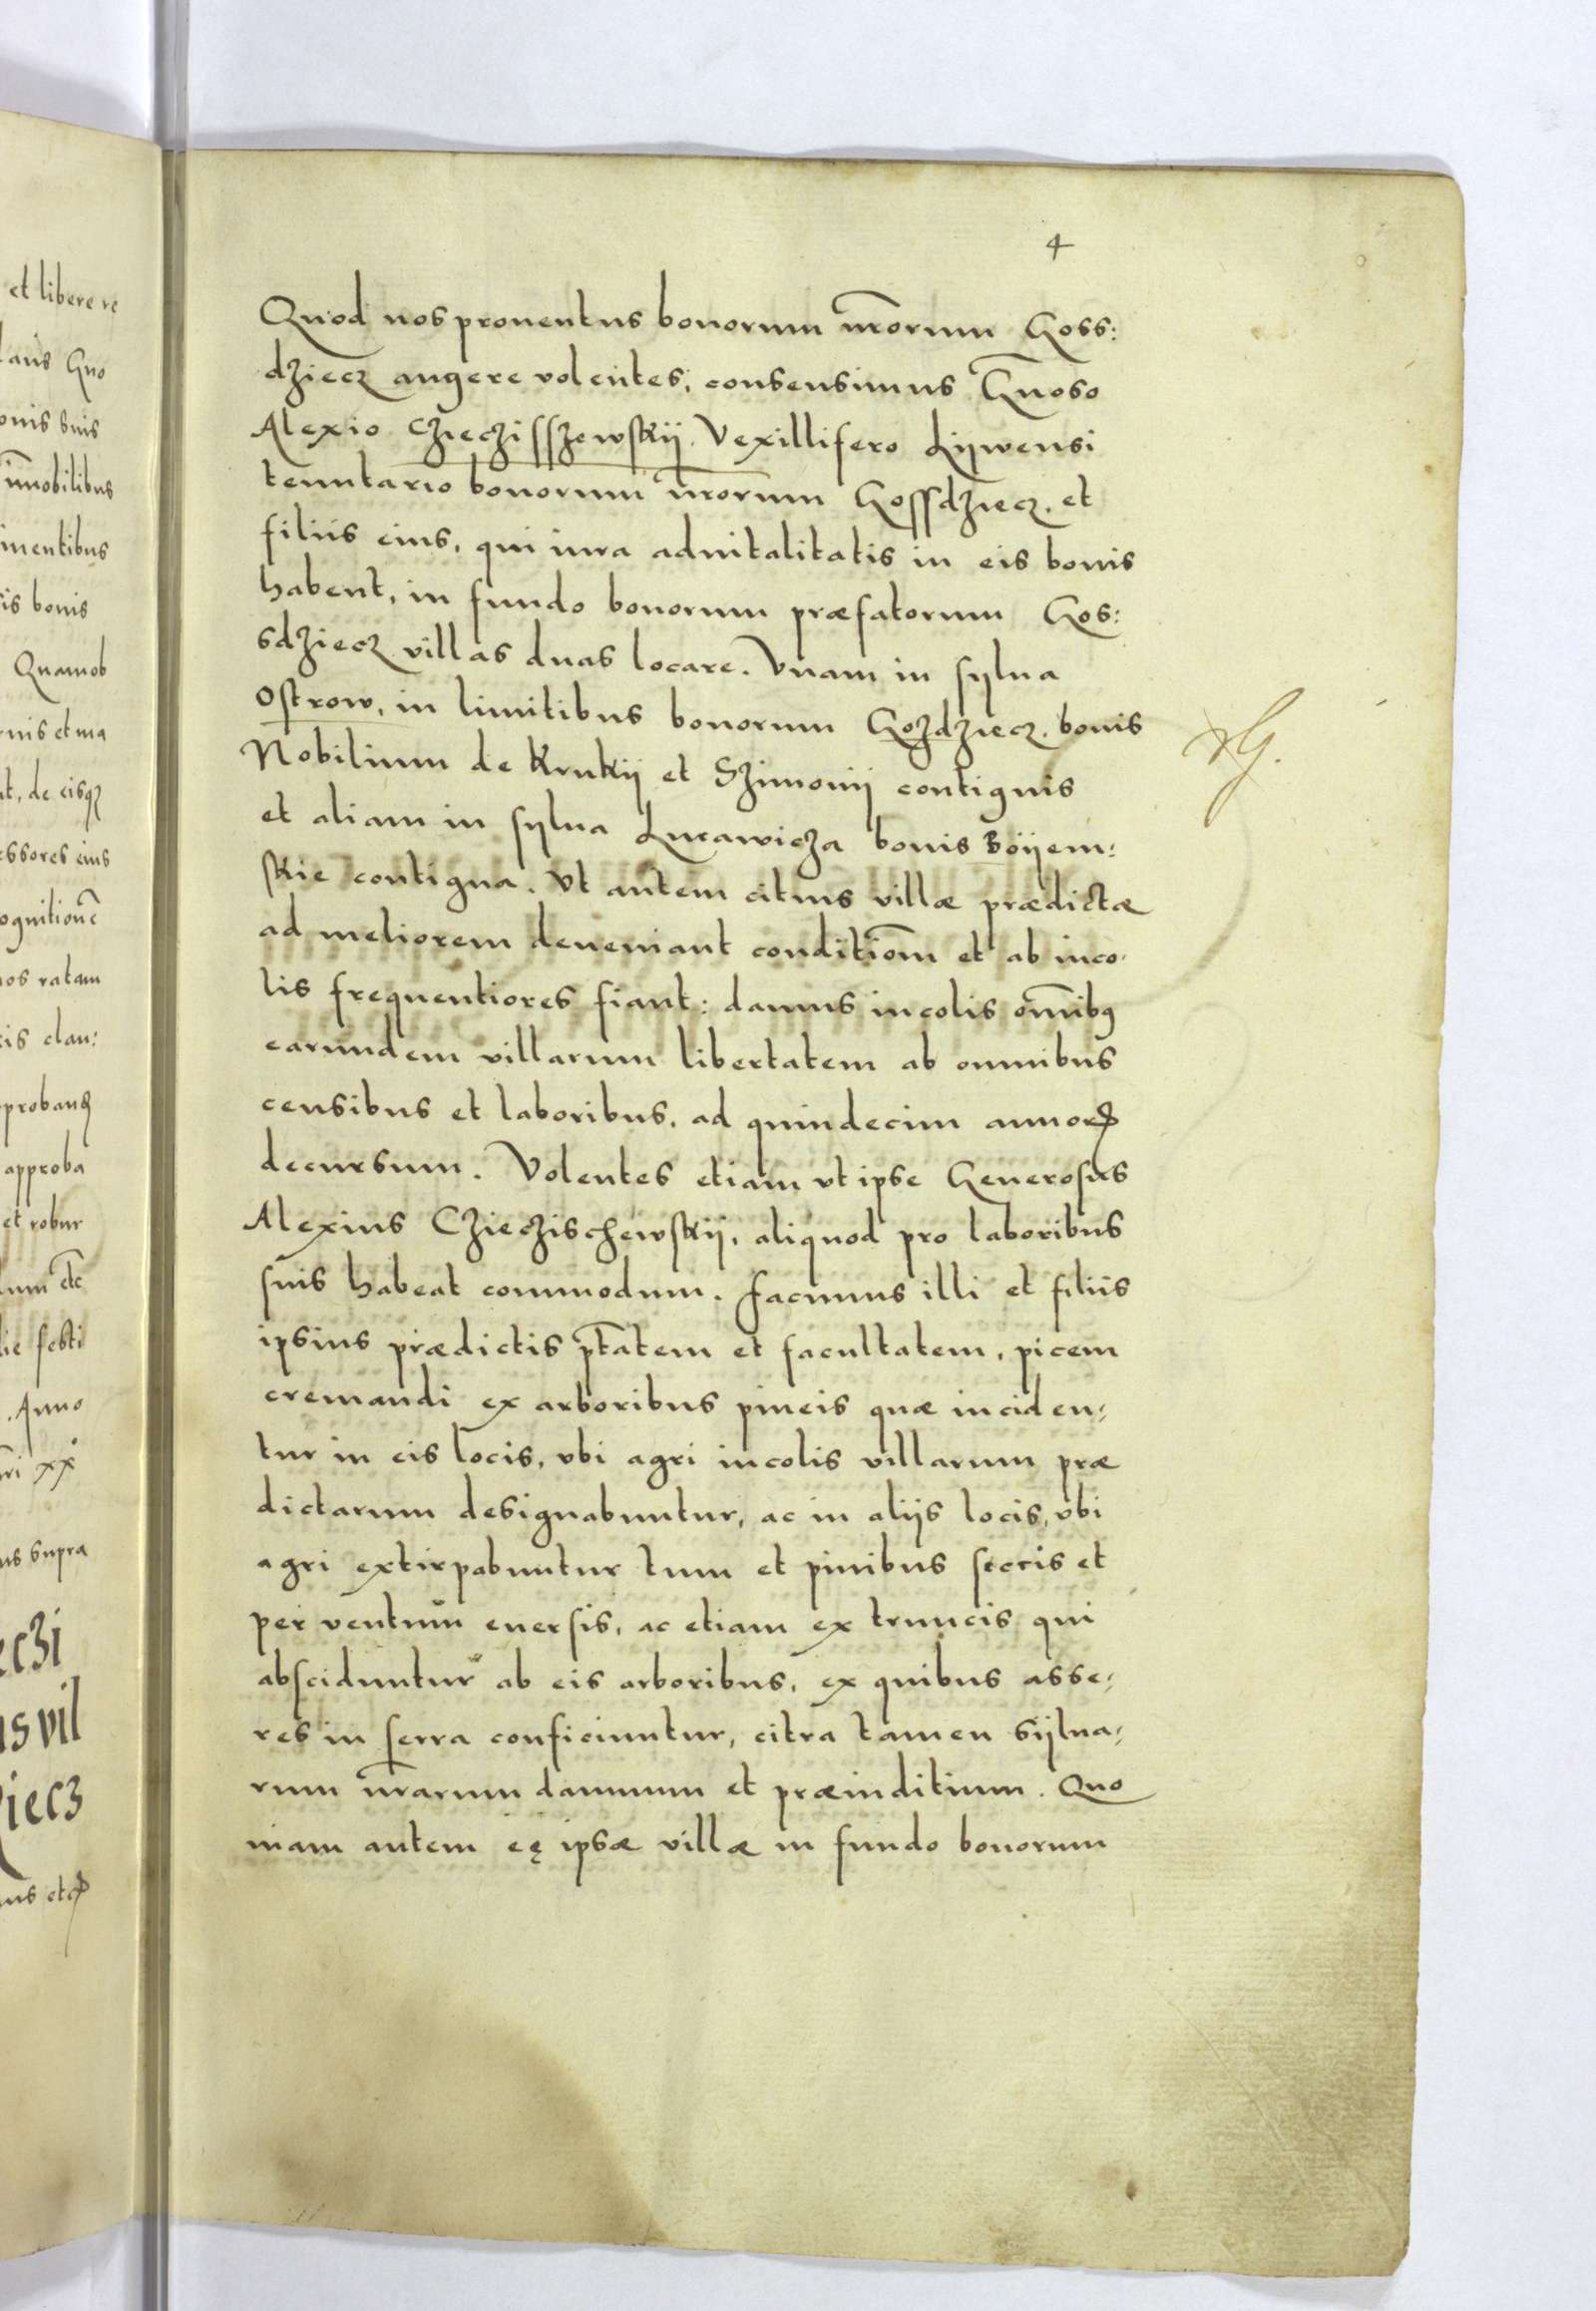 4
Quod nos prouentus bonorum nr̃orum Goss:
dziecz augere volentes, consensimus Gñoso
Alexio Czieczisszewskij Vexillifero Lijwensi
tenutario bonorum nr̃orum Gossdziecz. et
filiis eius, qui iura aduitalitatis in eis bonis
habent, in fundo bonorum præfatorum Gos:
sdziecz villas duas locare. Vnam in sylua
Ostrow, in limitibus bonorum Gozdziecz. bonis
Nobilium de Krukij et Szimonij contiguis
et aliam in sylua Lucawicza bonis Boÿem:
skie contigua. Vt autem citius villæ prædictæ
ad meliorem deueniant conditiom̃ et ab inco-
lis frequentiores fiant: damus incolis om̃ibꝰ
earundem villarum libertatem ab omnibus
censibus et laboribus, ad quindecim annoꝝ
decursum. Volentes etiam vt ipse Generosus
Alexius Czieczischewskij, aliquod pro laboribus
suis habeat commodum. facimus illi et filiis
ipsius prædictis ptãtem et facultatem, picem
cremandi ex arboribus pineis quæ inciden-
tur in eis locis, vbi agri incolis villarum præ
dictarum designabuntur, ac in aliis locis, vbi
agri extirpabuntur tum et pinibus siccis et
per ventum euersis, ac etiam ex truncis qui
absciduntur ab eis arboribus, ex quibus asse-
res in serra conficiuntur, citra tamen sÿlua-
rum nr̃arum damnum et præiuditium. Quo
niam autem eę ipsæ villæ in fundo bonorum
et libere re
onis suis
im̃obilibus
inentibus
is bonis
Quamob
nis et ma
t, de eisqꝫ
essores eius
ognitionẽ
os ratam
is clau:
approba
et robur
um etc
ie festi
Anno
ri xx
us supra
eczi
us vil
iecz